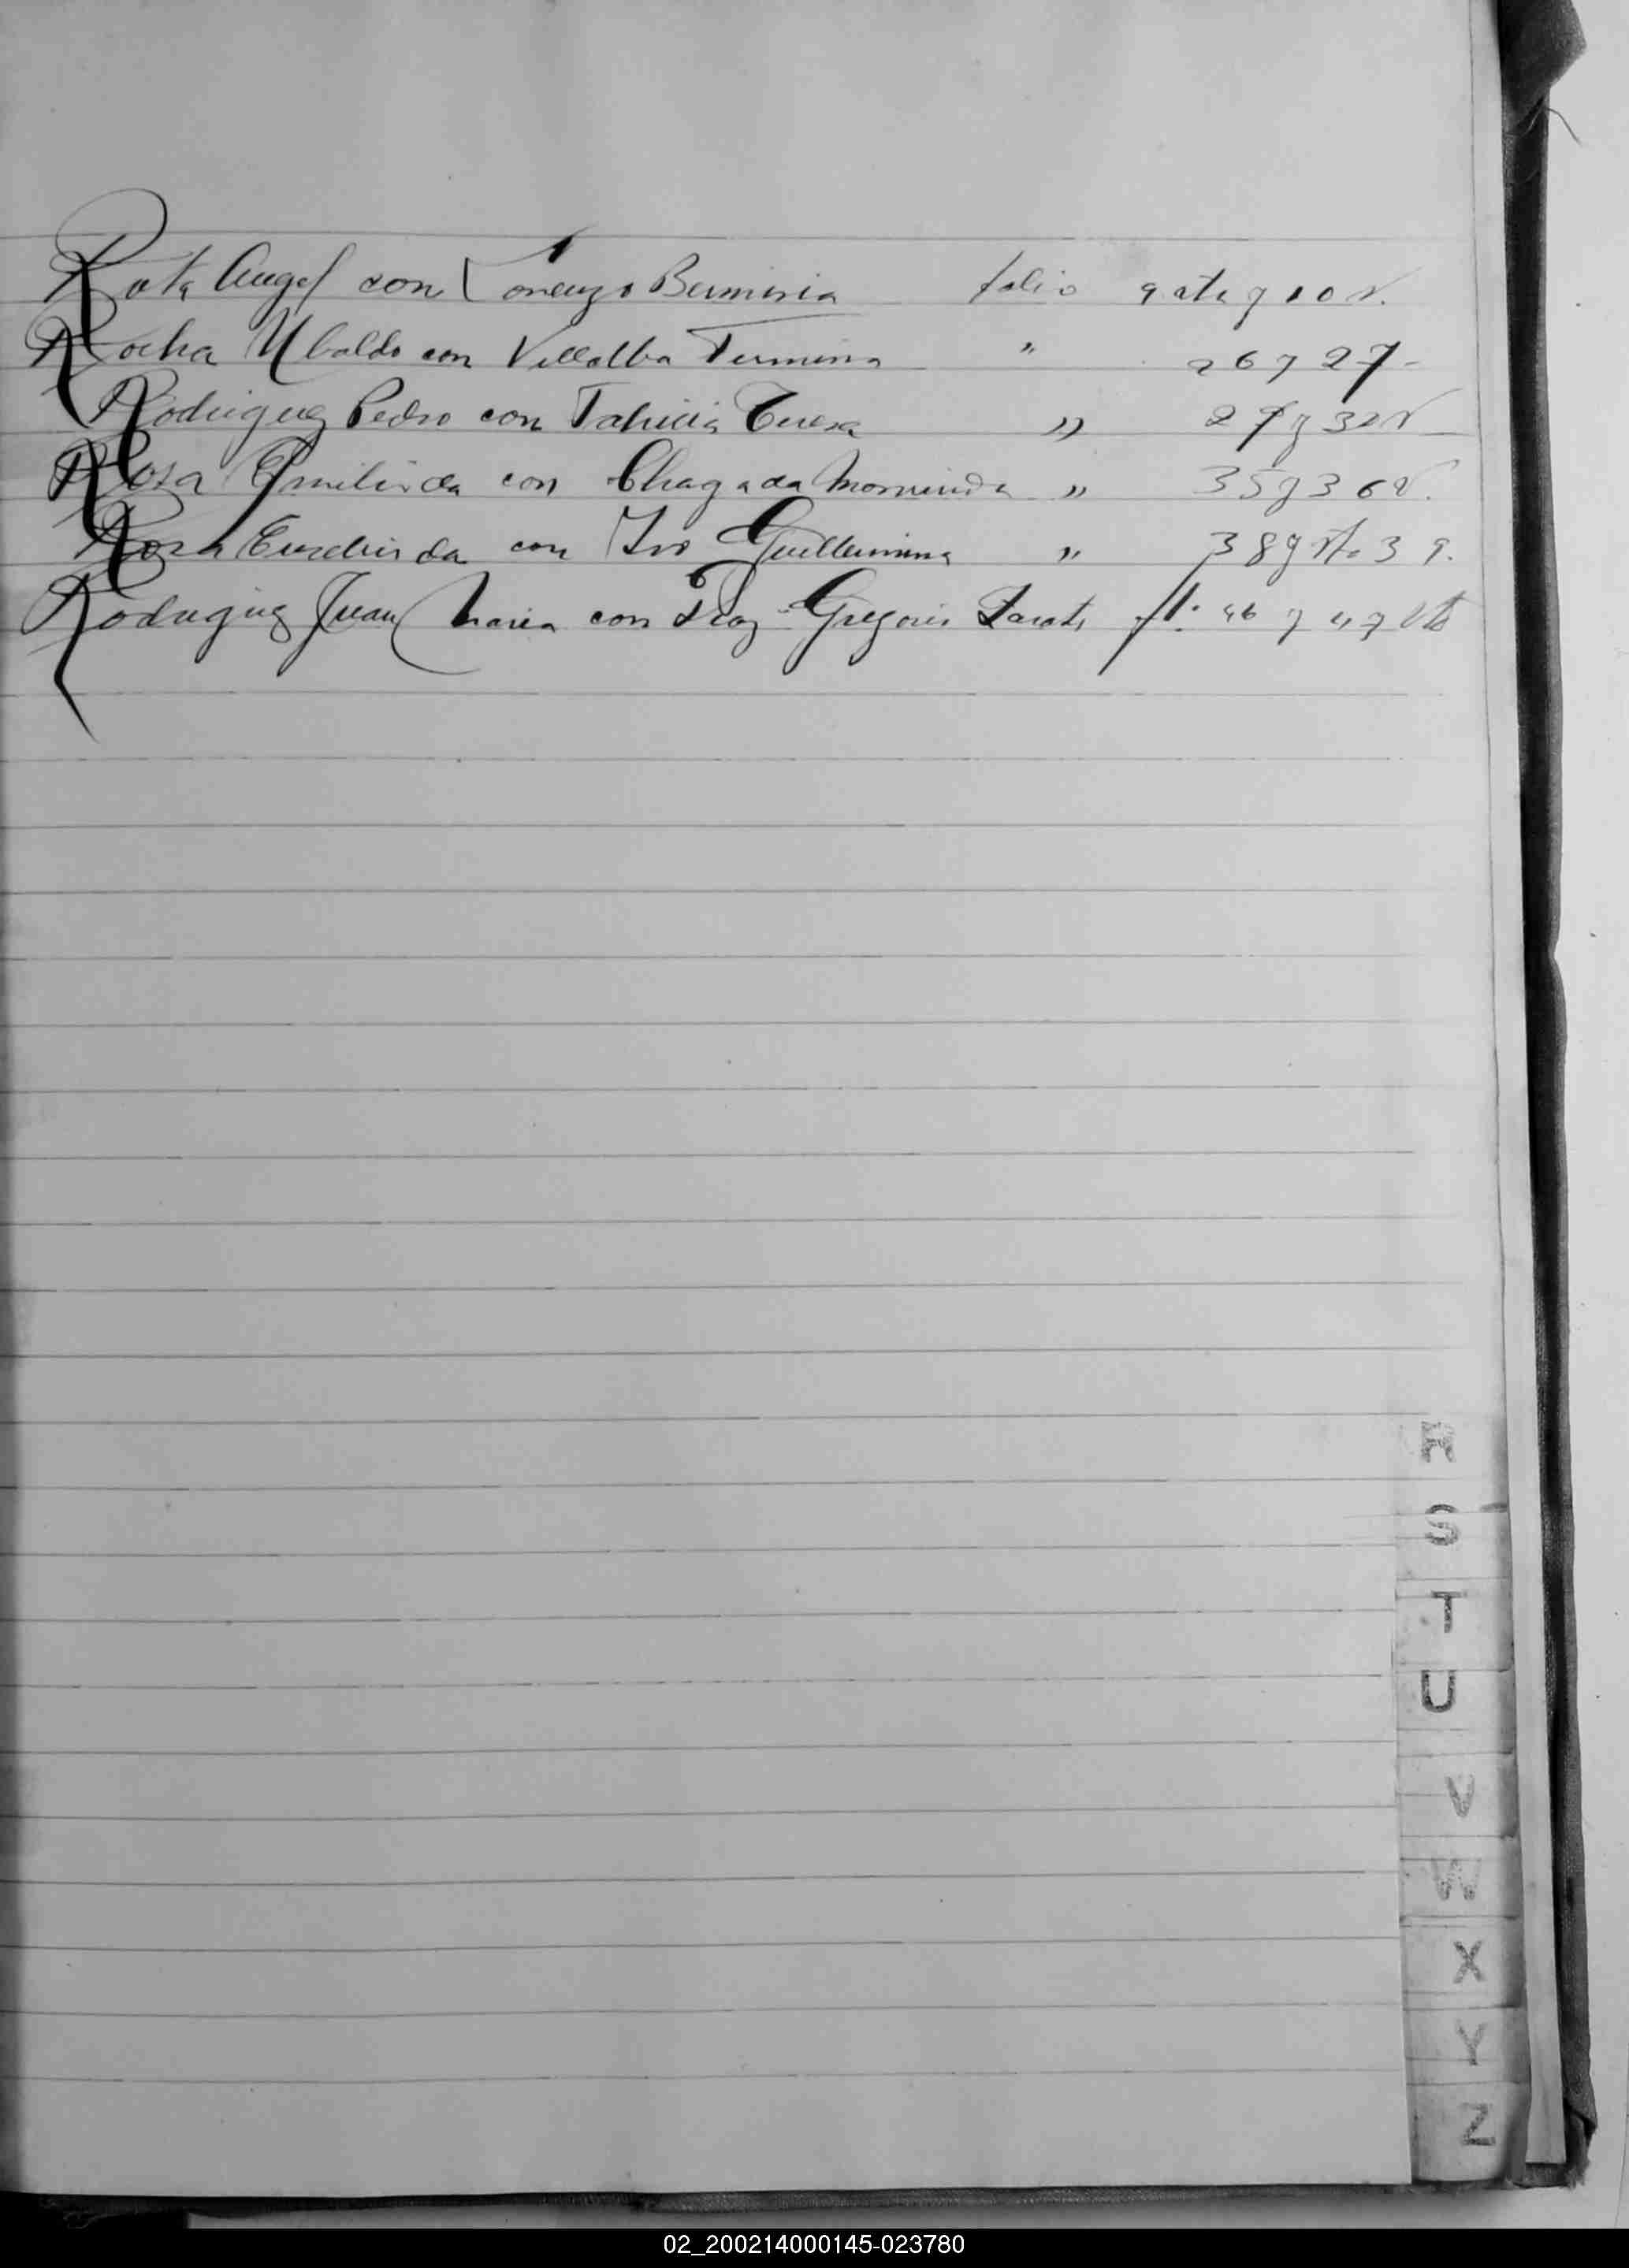 Rota Angel con Lorenzo Berminia folio 9 vta y 10 v.
Rocha Ubaldo con Villalba Fermina " 26 y 27-
Rodriguez Pedro con Teresa " 29 y 30 v
Rosa con Chagada " 35 y 36 v.
Rosa con Ivo Guillermina " 38 y vto 39.
Rodriguez Juan Maria con Diaz Gregorio Zarate fl. 46 y 47 vto
R
S
T
U
V
W
X
Y
Z
02_200214000145-023780